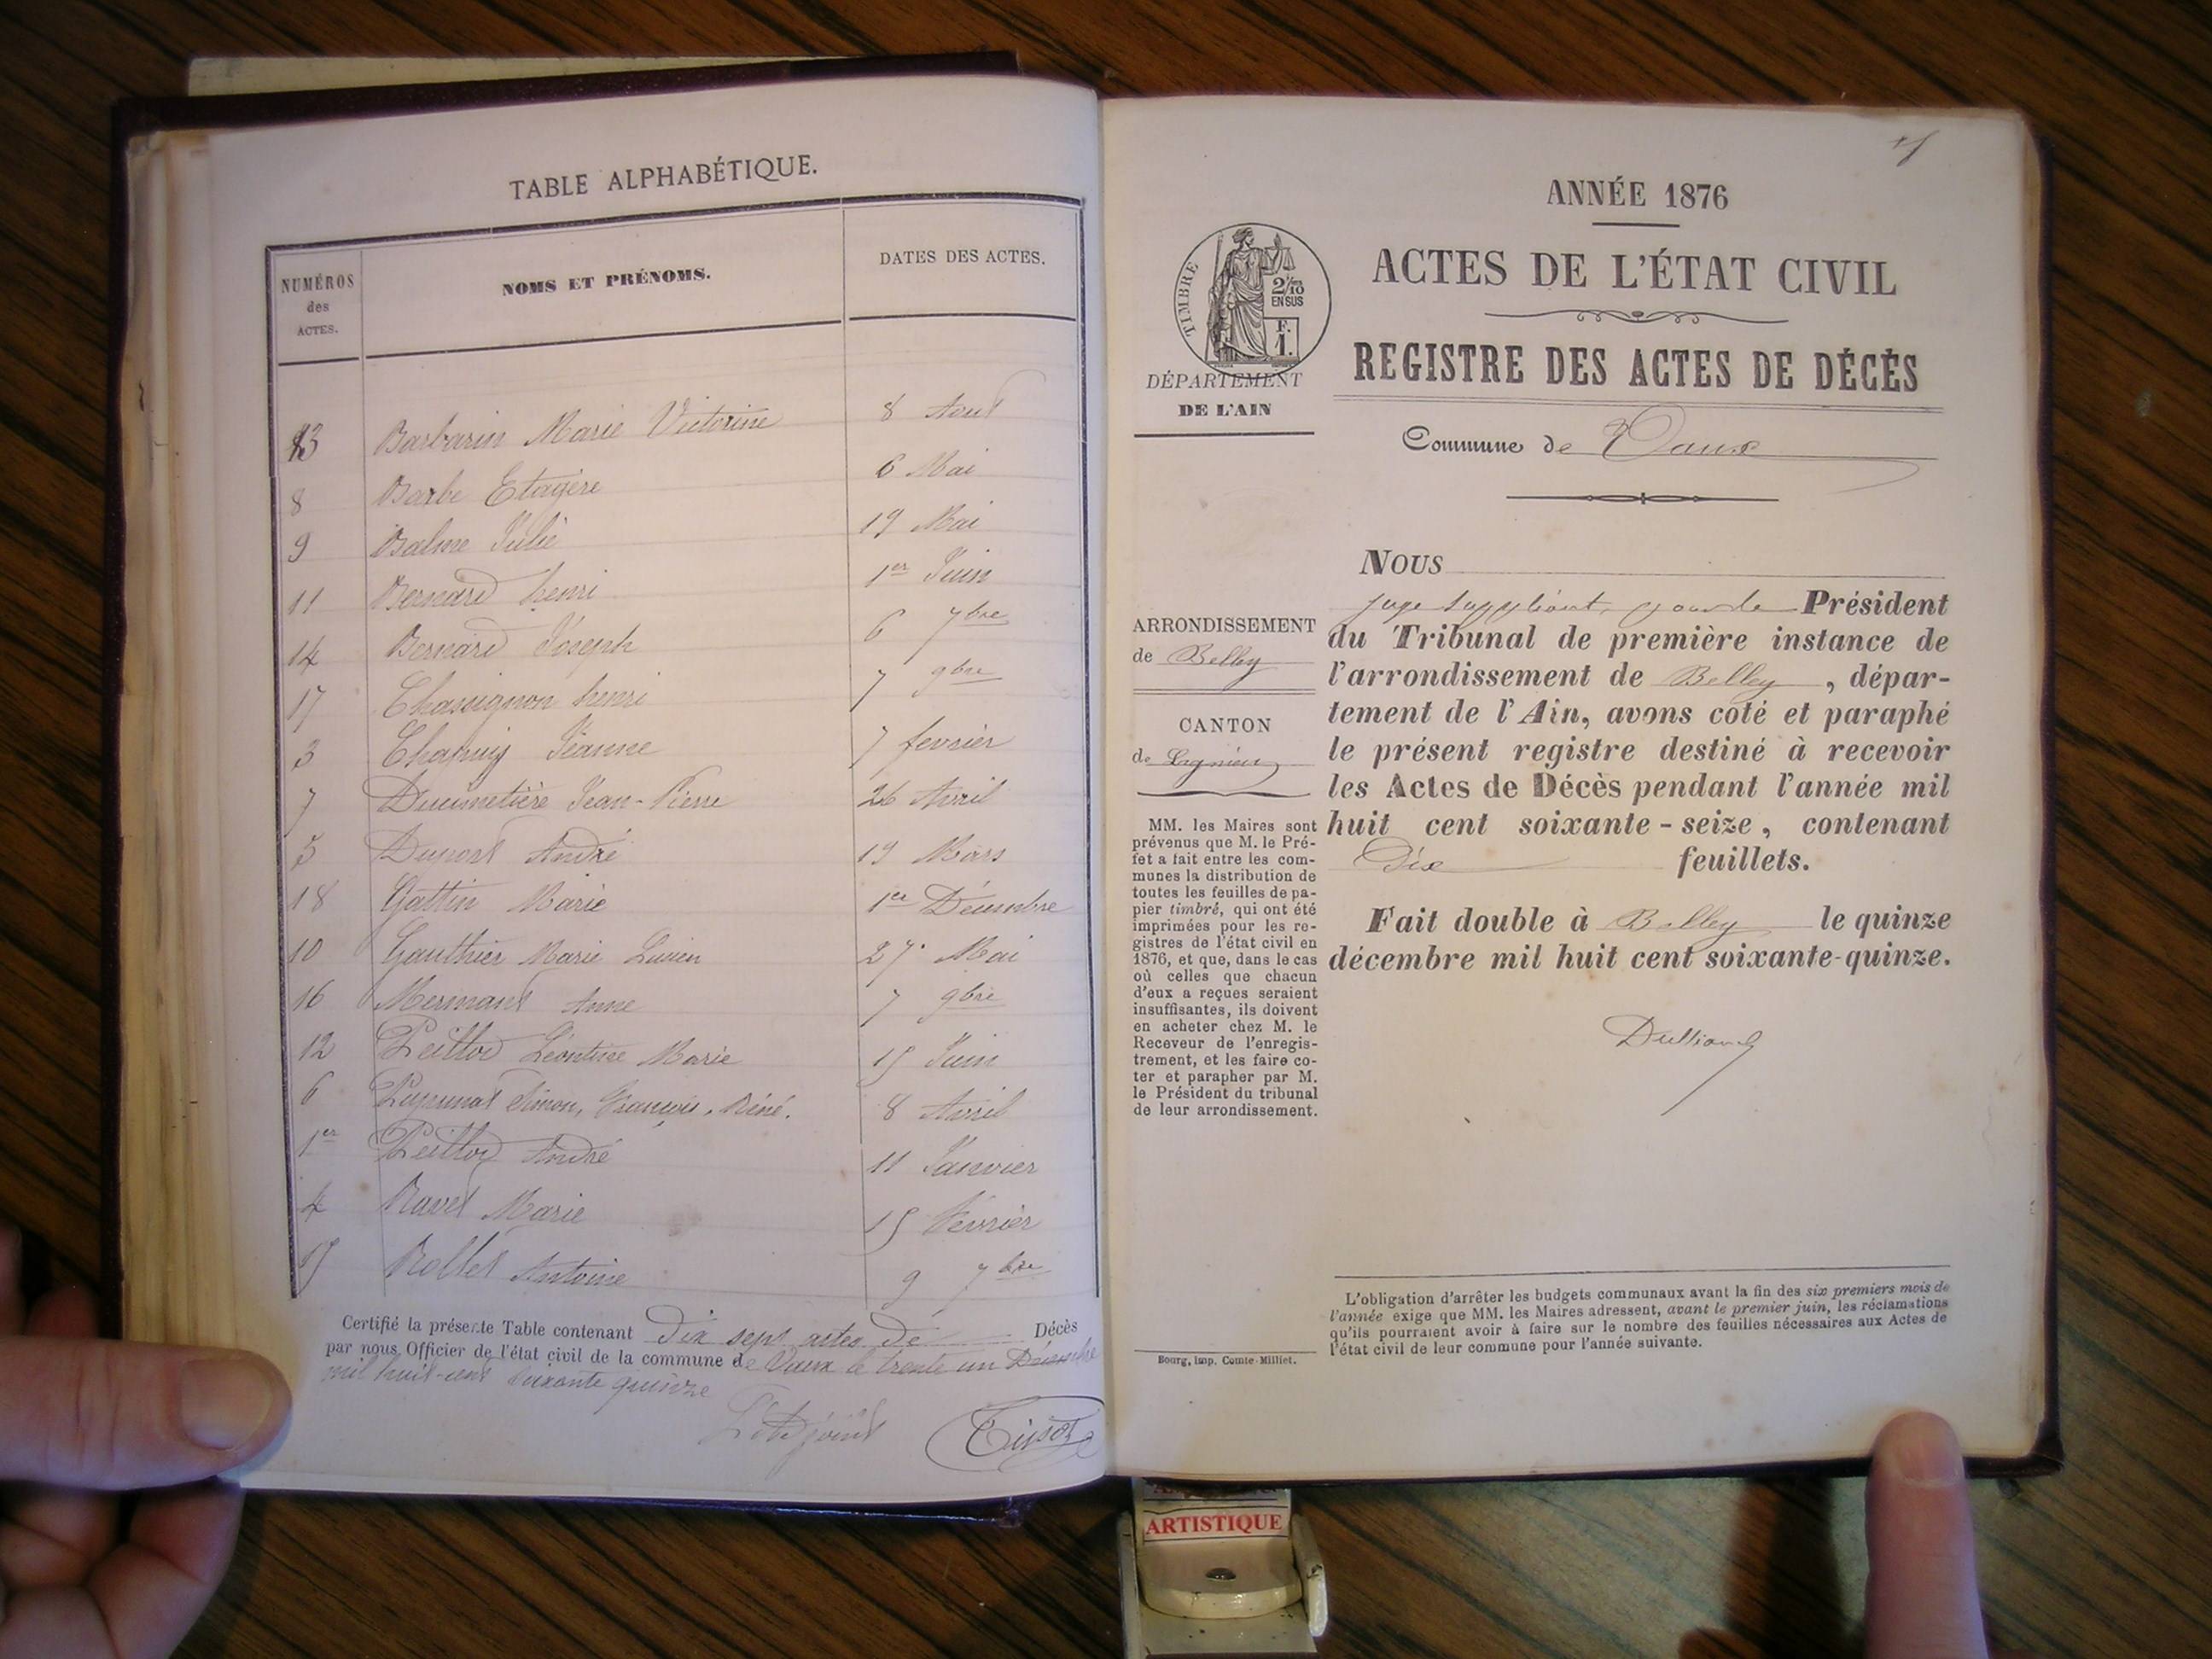 TABLE ALPHABÉTIQUE.
NUMÉROS des ACTES. NOMS ET PRÉNOMS. DATES DES ACTES.
13 Barbarin Marie Victorine 8 Aout
8 Barbe Etagère 6 Mai
9 Balme Julie 19 Mai
11 Bernard henri 1er Juin
14 Bernard Joseph 6 7bre
17 Chassignon henri 7 9bre
3 Chapuy Jeanne 7 fevrier
7 Ducimetière Jean-Pierre 26 Avril
5 Dupont André 19 Mars
18 Gattin Marie 1er Décembre
10 Gauthier Marie Lucien 27 Mai
16 Mermant Anne 7 9bre
12 Peillod Léontine Marie 15 Juin
6 Simon, François, Réné. 8 Avril
1er Peillod André 11 Janvier
4 Ravet Marie 15 Février
15 Rollet Antoine 9 7bre
Certifié la présente Table contenant dix sept actes de Décès
par nous Officier de l'état civil de la commune de Vaux le trente un Décembre
mil huit-cent soixante quinze
L'Adjoint Tissot
ANNÉE 1876
ACTES DE L'ÉTAT CIVIL
REGISTRE DES ACTES DE DÉCÈS
Commune de Vaux
TIMBRE
2/10
EN SUS
F.
1.
DÉPARTEMENT
DE L'AIN
ARRONDISSEMENT
de Belley
CANTON
de Lagnieu
MM. les Maires sont
prévenus que M. le Pré-
fet a fait entre les com-
munes la distribution de
toutes les feuilles de pa-
pier timbré, qui ont été
imprimées pour les re-
gistres de l'état civil en
1876, et que, dans le cas
où celles que chacun
d'eux a reçues seraient
insuffisantes, ils doivent
en acheter chez M. le
Receveur de l'enregis-
trement, et les faire co-
ter et parapher par M.
le Président du tribunal
de leur arrondissement.
Bourg, Imp. Comte-Milliet.
NOUS
juge suppléant, pour le Président
du Tribunal de première instance de
l'arrondissement de Belley, dépar-
tement de l'Ain, avons coté et paraphé
le présent registre destiné à recevoir
les Actes de Décès pendant l'année mil
huit cent soixante-seize, contenant
Dix feuillets.
Fait double à Belley le quinze
décembre mil huit cent soixante-quinze.
L'obligation d'arrêter les budgets communaux avant la fin des six premiers mois de
l'année exige que MM. les Maires adressent, avant le premier juin, les réclamations
qu'ils pourraient avoir à faire sur le nombre des feuilles nécessaires aux Actes de
l'état civil de leur commune pour l'année suivante.
ARTISTIQUE